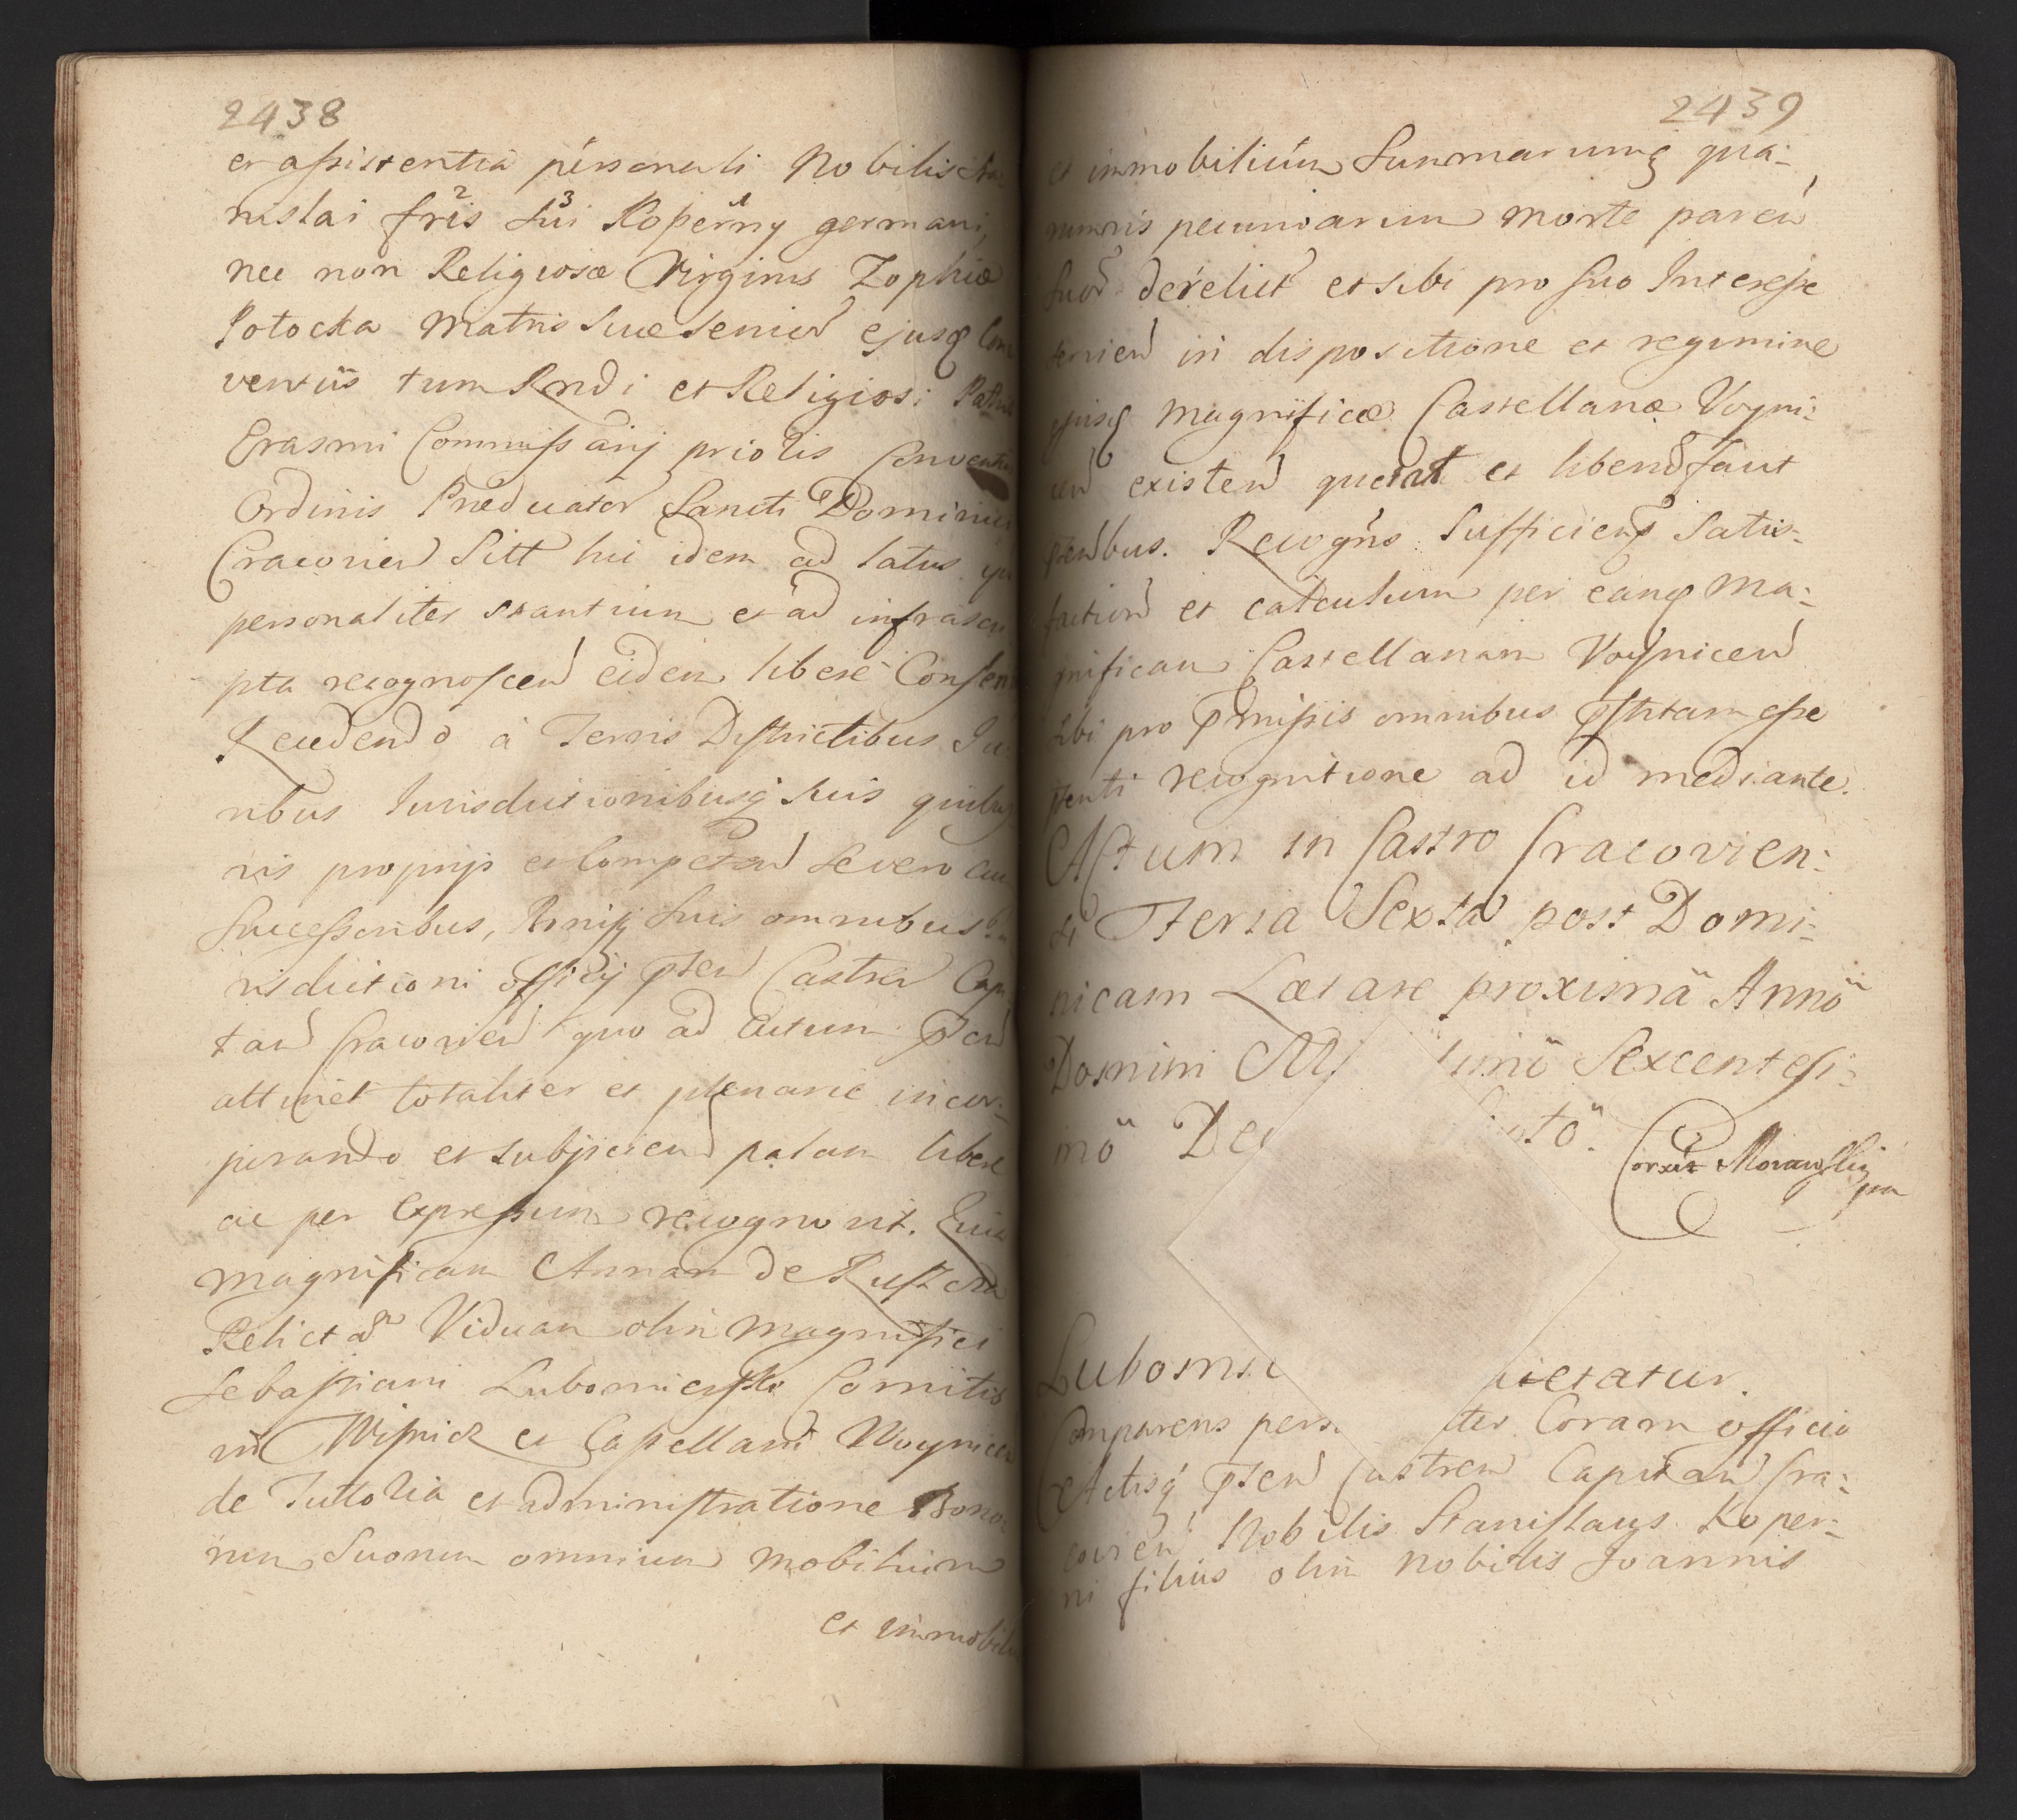 2438
et assistentia personali Nobilis Sta
nislai fr̃is sui Koperny germani,
nec non Religiosæ Virginis Zophiæ
Potocka Matris suæ Senien ejusq Con
ventus tum Rndi et Religiosi Patris
Erasmi Commissarij priolis Conventus
Ordinis Prædicator Sancti Dominici
Cracovien Sitt hic idem ad latus
personaliter stantium et ad infrascri
pta recognoscen eidem libere Consen
Recedendo à Terris Districtibus Ju
ribus Jurisdictionibusq suis quibus
vis proprijs et Competen se vero cum
Successoribus, Bonisq suis omnibus Ju
risdictioni officij pñten Castren Capi
tan Cracovien quo ad actum pñten
attinet totaliter et plenarie incor:
porando et subijcien palam libere
ac per expressum recognovit. Quia
Magnificam Annam de Ruszcza
Relictã Viduam olim Magnifici
Sebastiani Lubomierski Comitis
in Wisnicz et Castellani Woynicen
de Tuttoria et administratione Bono
rum Suorum omnium mobilium
et immobiliu
2439
et immobilium Summarumq qua:
rumvis pecuniarum morte paren
suor derelict et sibi pro suo Interesse
servien in dispositione et regimine
ejusq Magnificæ Castellanæ Voyni:
cen existen quietat et liberos faut
pñtenbus. Recogñs sufficiens satis:
faction et calculum per eanq Ma:
gnificam Castellanam Voynicen
sibi pro pꝛmissis omnibus pꝛstitam esse
pñti recognitione ad id mediante.
Actum in Castro Cracovien:
si Feria Sexta post Domi:
nicam Lætare proximã Annõ
Domini Mi imõ Sexcentesi:
mõ De tõ.
Correxit Morawski
mp
Lubomi ietatur.
Comparens pers ter Coram officio
Actisq pñten Castren Capitan Cra:
covien Nobilis Stanislaus Koper:
ni filius olim Nobilis Joannis